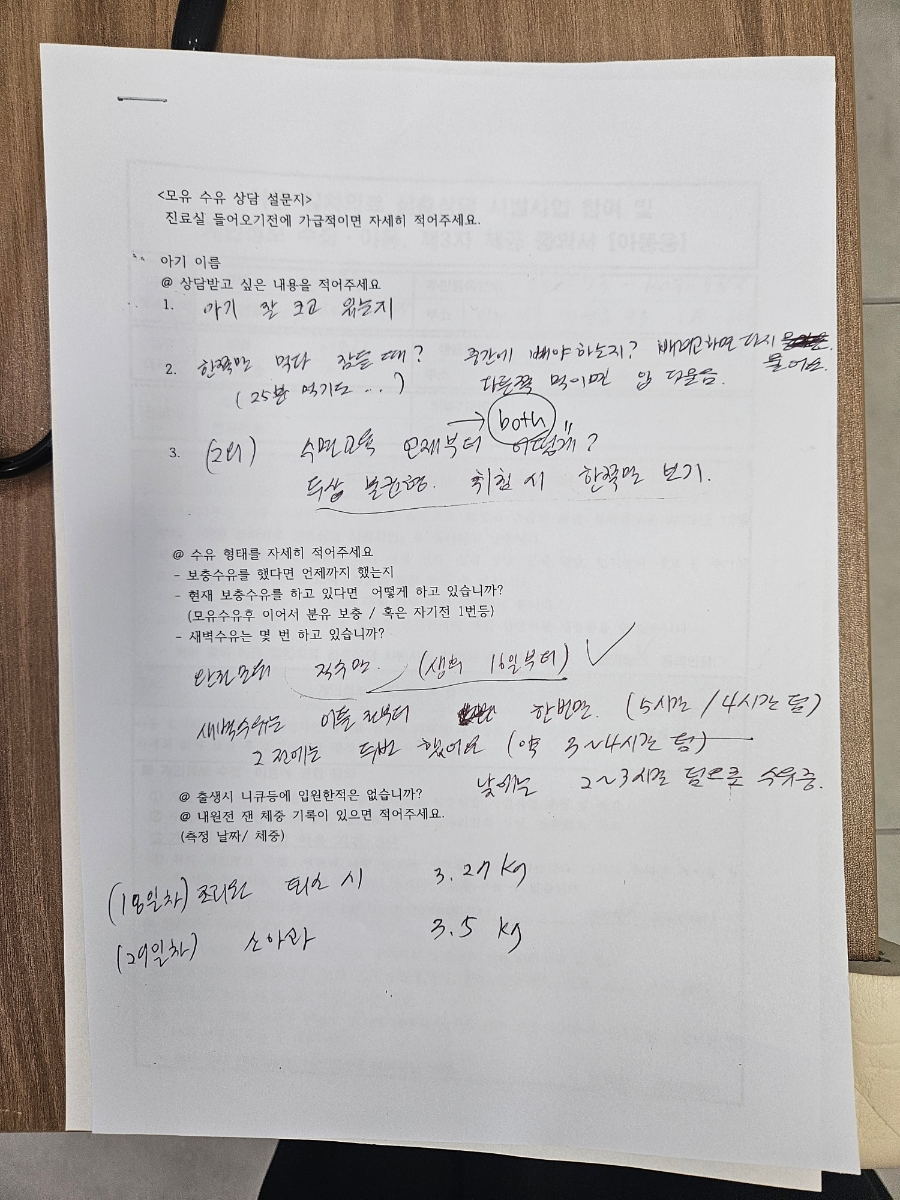 <모유 수유 상담 설문지>
진료실 들어오기전에 가급적이면 자세히 적어주세요.
아기 이름
@ 상담받고 싶은 내용을 적어주세요
1. 아기 잘 크고 있는지
2. 한쪽만 먹다 잠들 때? 중간에 빼야 하는지? 빼려고하면 다시 물어요.
(25분 먹기도 ...) 다른쪽 먹이면 입 다물음.
→ both
3. (2외) 수면교육 언제부터 어떻게?
두상 불균형. 취침 시 한쪽만 보기.
@ 수유 형태를 자세히 적어주세요
- 보충수유를 했다면 언제까지 했는지
- 현재 보충수유를 하고 있다면 어떻게 하고 있습니까?
(모유수유후 이어서 분유 보충 / 혹은 자기전 1번등)
- 새벽수유는 몇 번 하고 있습니까?
완전모유 직수만. (생후 16일부터) ✓
새벽수유는 이틀 전부터 한번만. (5시간 / 4시간 텀)
그 전에는 두번 했어요 (약 3~4시간 텀)
낮에는 2~3시간 텀으로 수유중.
@ 출생시 니큐등에 입원한적은 없습니까?
@ 내원전 잰 체중 기록이 있으면 적어주세요.
(측정 날짜/ 체중)
(18일차) 조리원 퇴소 시 3.27 kg
(29일차) 소아과 3.5 kg